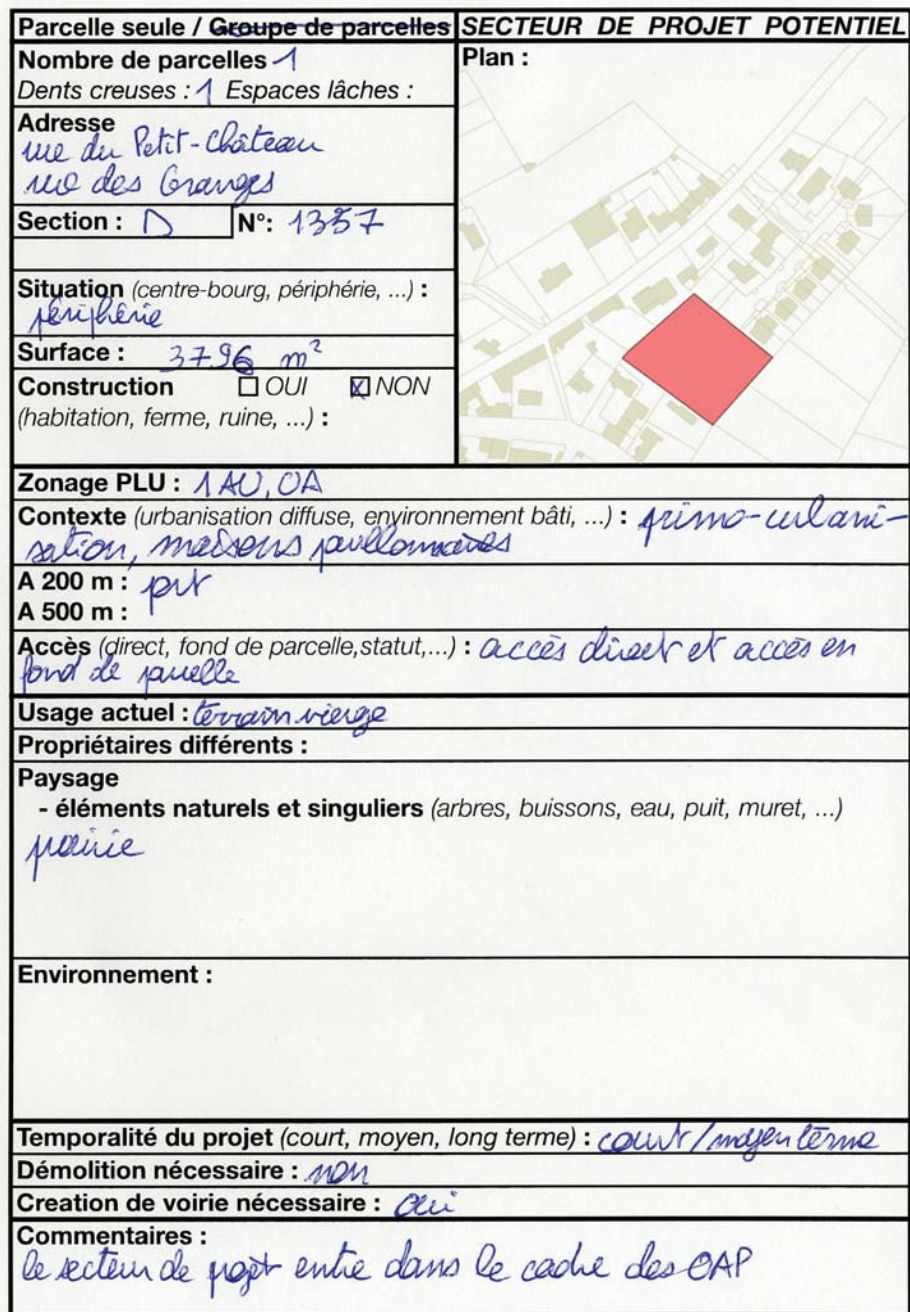 Parcelle seule / Groupe de parcelles
SECTEUR DE PROJET POTENTIEL
Nombre de parcelles 1
Dents creuses : 1 Espaces lâches :
Plan :
Adresse
rue du Petit-Château
rue des Granges
Section : D N°: 1357
Situation (centre-bourg, périphérie, ...) :
périphérie
Surface : 3796 m²
Construction OUI NON
(habitation, ferme, ruine, ...) :
Zonage PLU : 1AU, OA
Contexte (urbanisation diffuse, environnement bâti, ...) : primo-urbani-
sation, maisons pavillonnaires
A 200 m :
A 500 m :
Accès (direct, fond de parcelle,statut,...) : accès direct et accès en
fond de parcelle
Usage actuel : terrain vierge
Propriétaires différents :
Paysage
- éléments naturels et singuliers (arbres, buissons, eau, puit, muret, ...)
prairie
Environnement :
Temporalité du projet (court, moyen, long terme) : court/moyen terme
Démolition nécessaire : non
Creation de voirie nécessaire : oui
Commentaires :
le secteur de projet entre dans le cadre des OAP